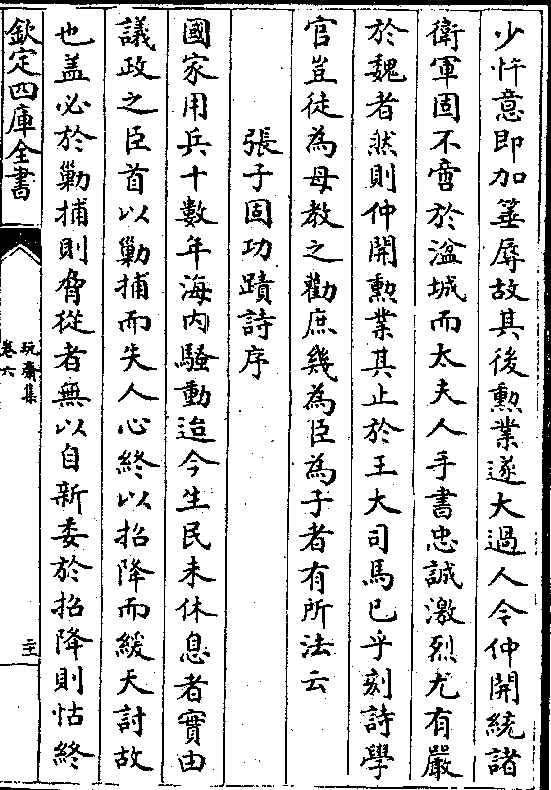 少忤意即加箠辱故其後勲業遂大過人今仲開統諸
衛軍固不啻於湓城而太夫人手書忠誠激烈尤有嚴
於魏者然則仲開勲業其止於王大司馬已乎刻詩學
官豈徒為母教之勸庶幾為臣為子者有所法云
張子固功蹟詩序
國家用兵十數年海内騷動迨今生民未休息者實由
議政之臣首以勦捕而失人心終以招降而緩天討故
也盖必於勦捕則脅從者無以自新委於招降則怙終
欽定四庫全書
玩齋集
卷六